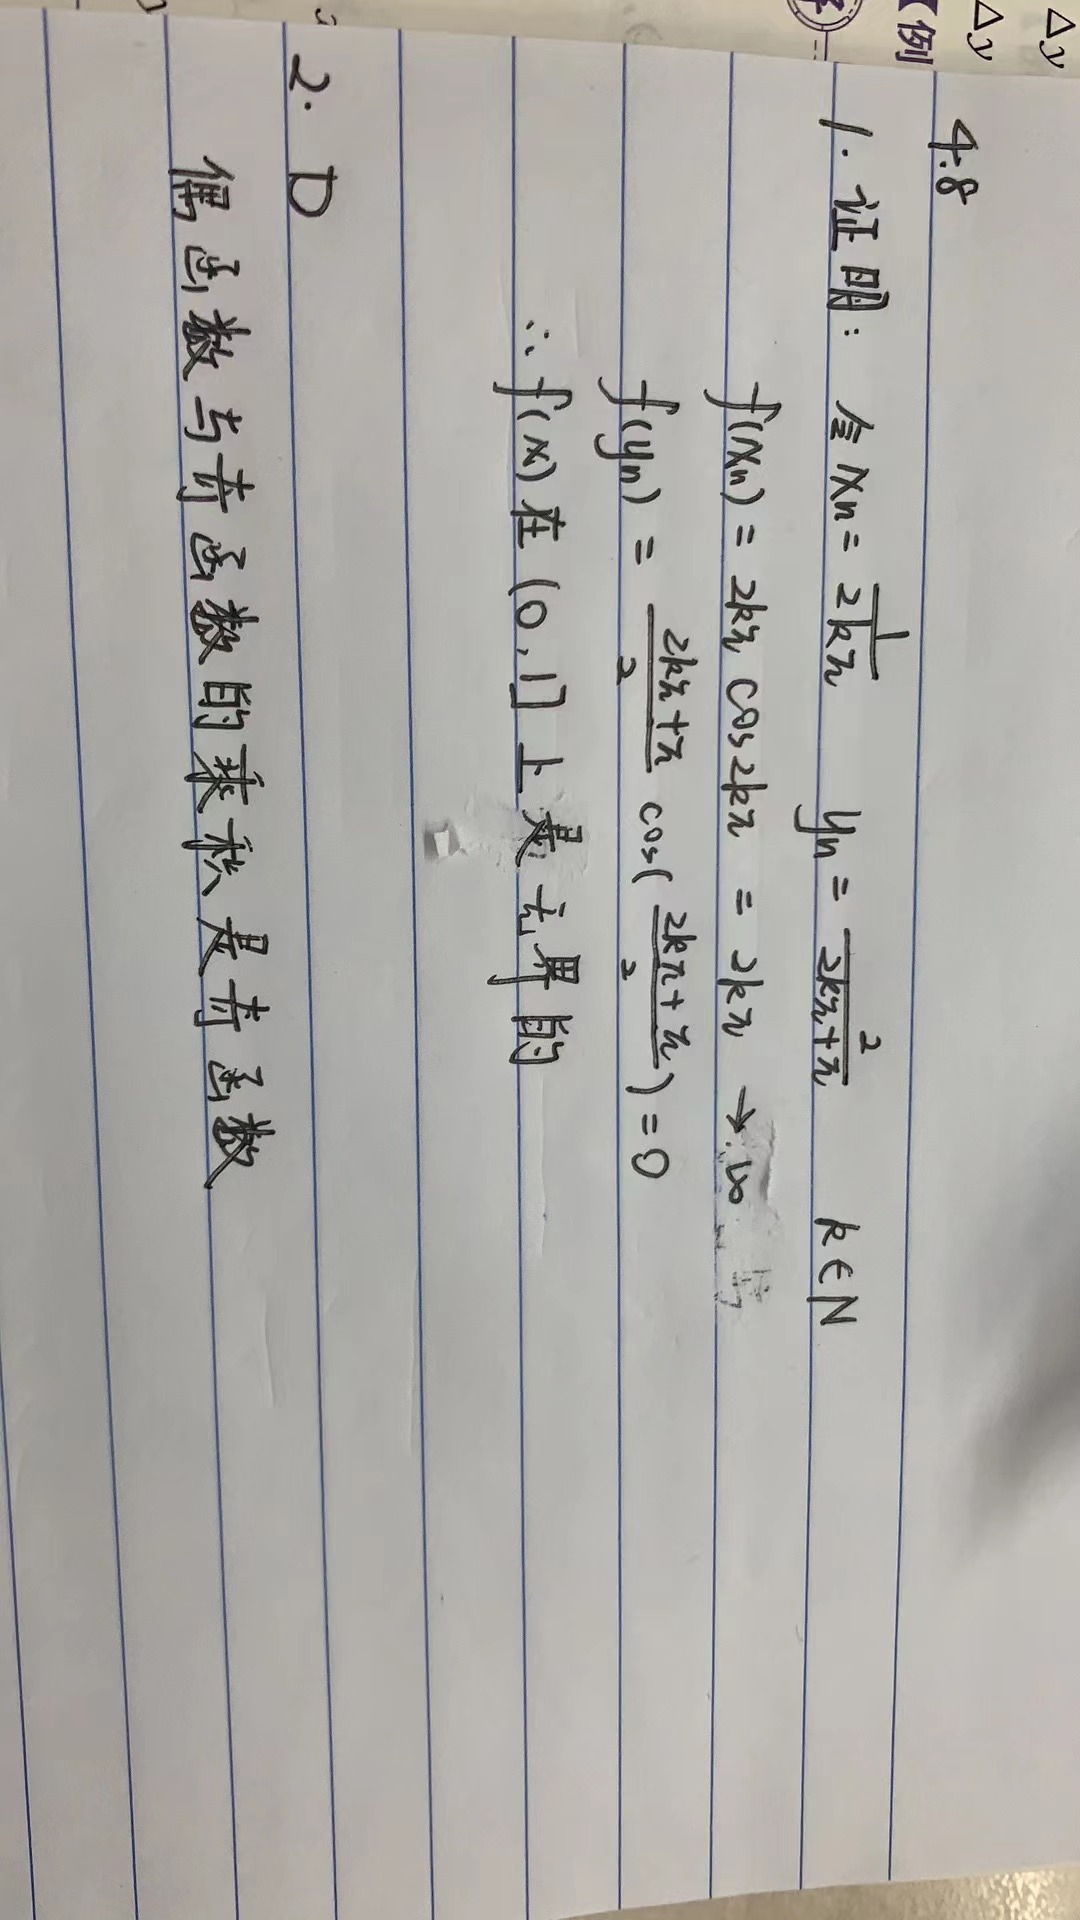 Δy
Δy
【例
4.8
1. 证明: 令 xn = 1/2kπ yn = 2/2kπ+π k∈N
f(xn) = 2kπ cos2kπ = 2kπ → ∞
f(yn) = 2kπ+π/2 cos(2kπ+π/2) = 0
∴ f(x) 在 (0,1] 上是无界的
2. D
偶函数与奇函数的乘积是奇函数